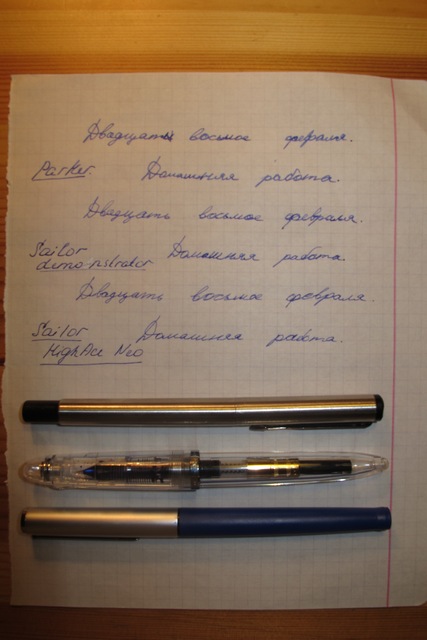 Двадцать восьмое февраля.
Parker. Домашняя работа.
Двадцать восьмое февраля.
Sailor Домашняя работа.
demonstrator
Двадцать восьмое февраля.
Sailor Домашняя работа.
HighAce Neo